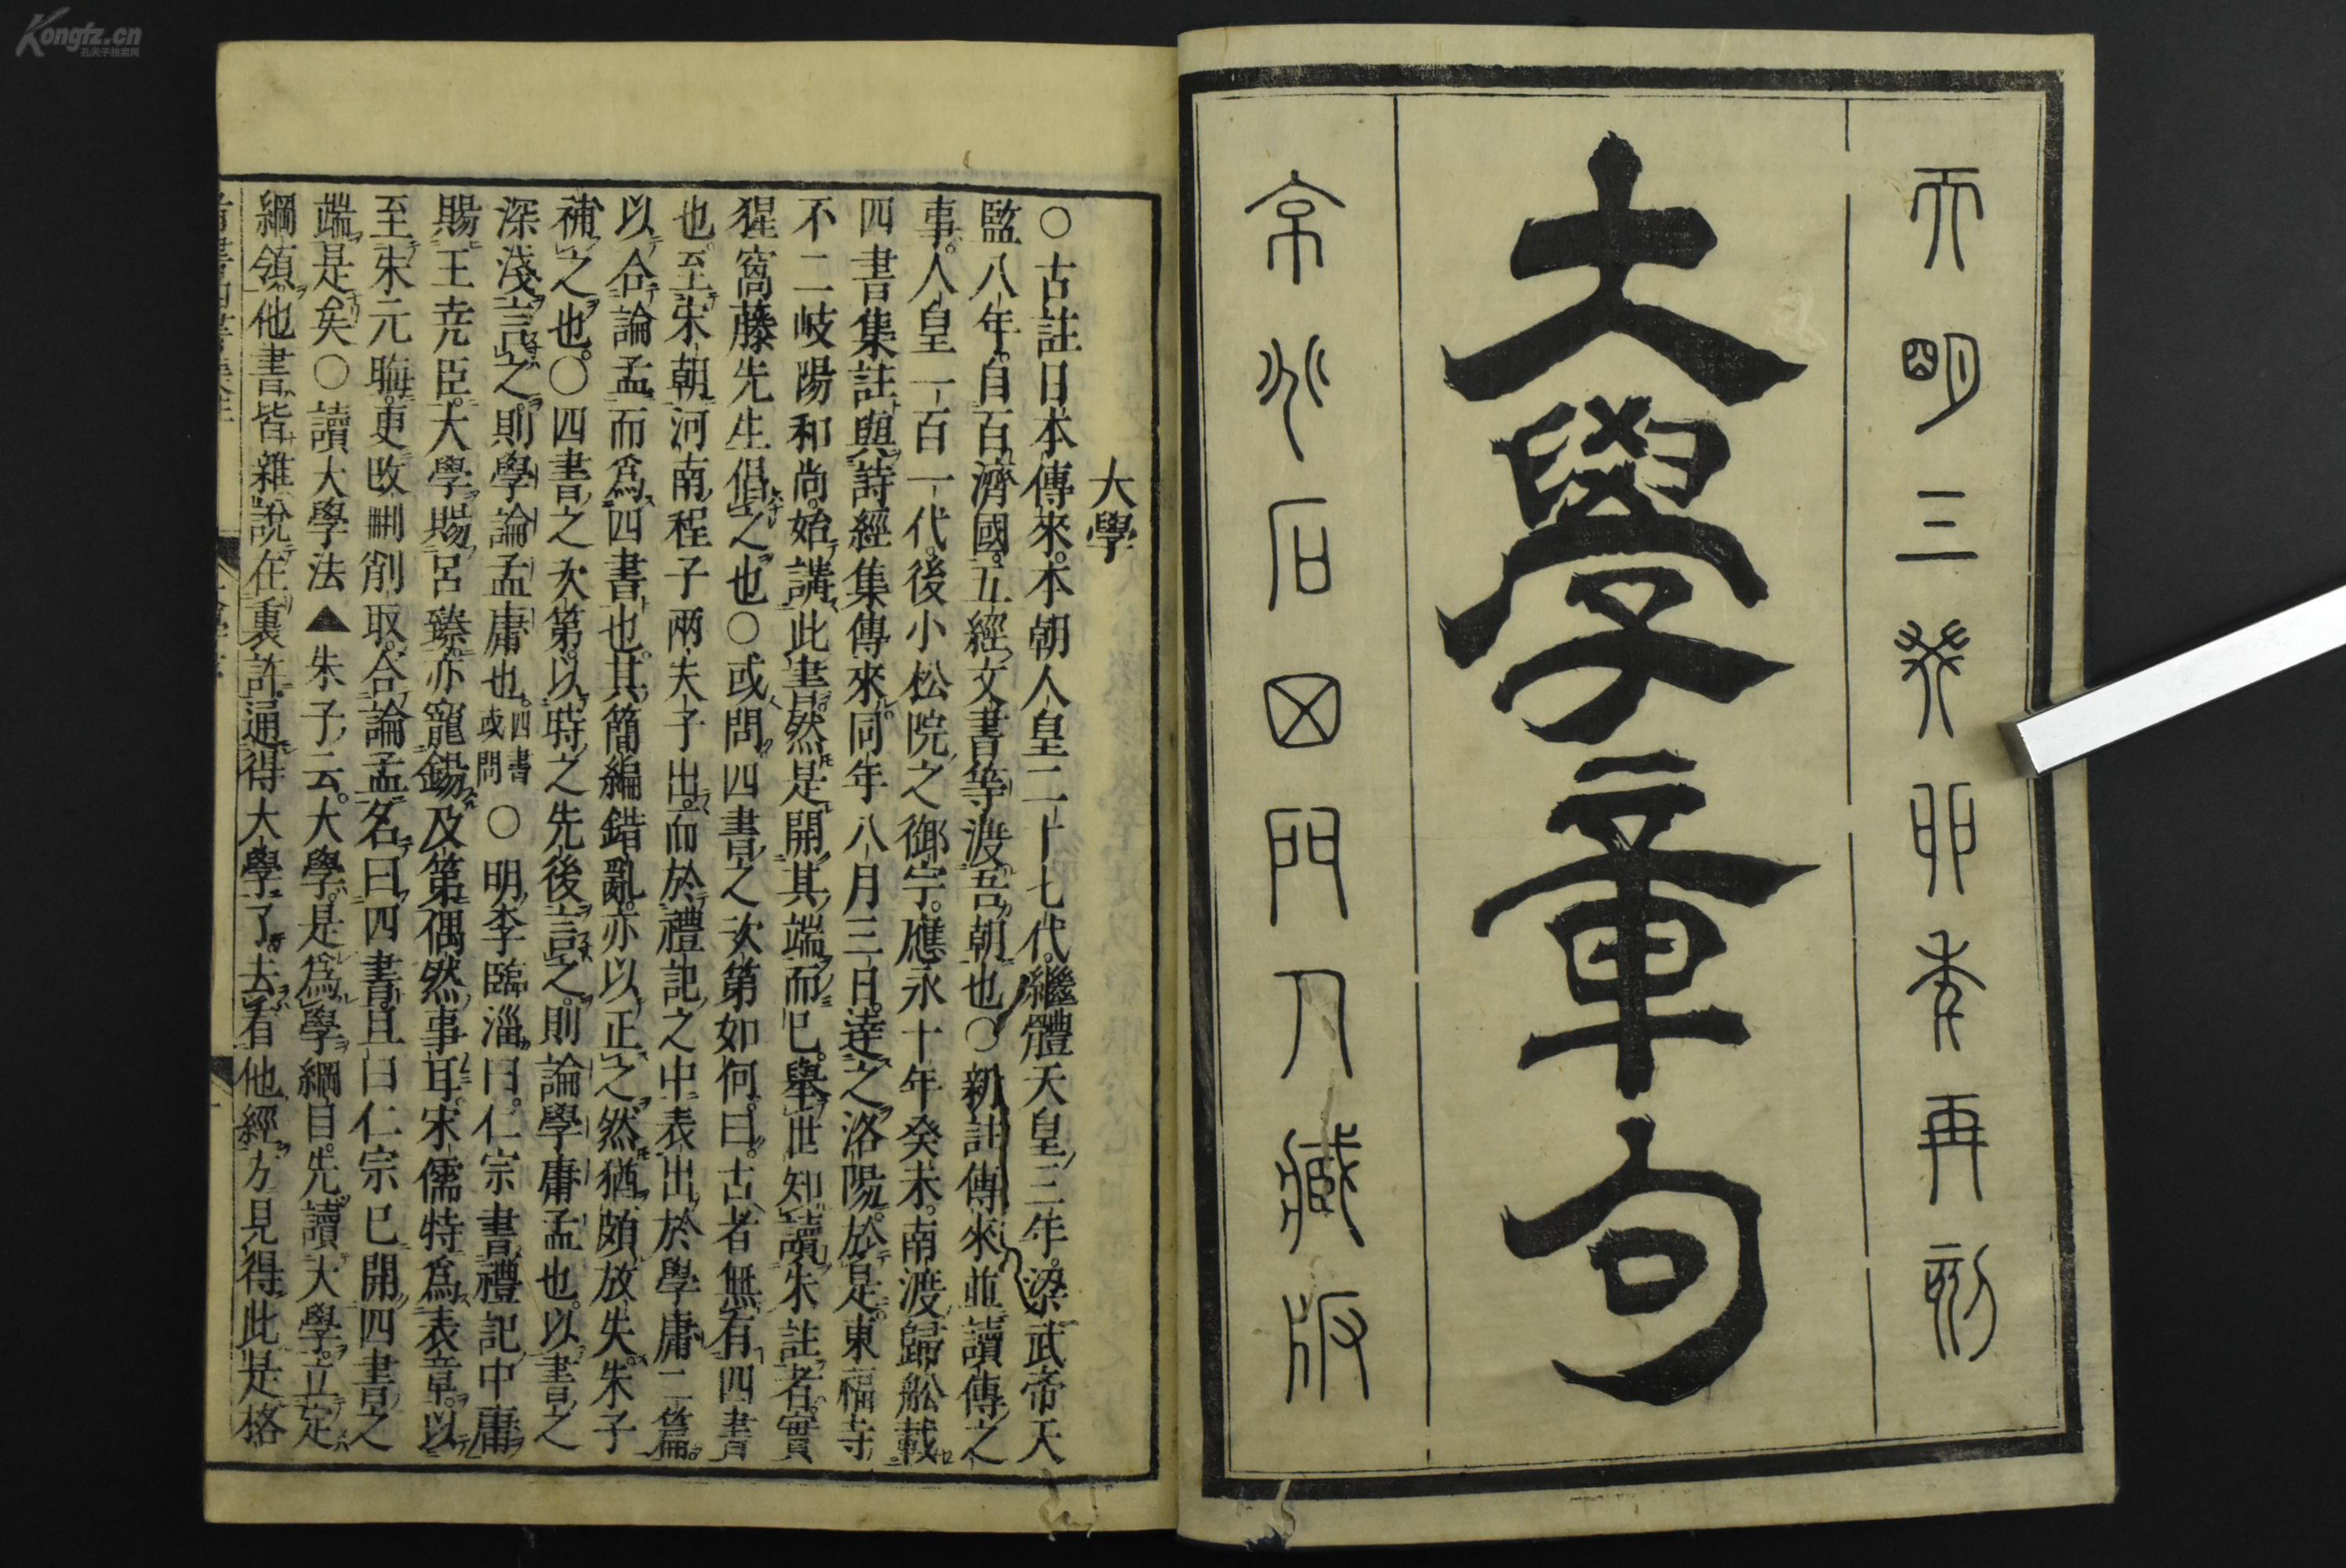 天明三癸卯年再刻
大學章句
京兆石田門人藏版
大學
○古註日本傳來。本朝人皇二十七代。繼體天皇三年。梁武帝天
監八年。自百濟國。五經文書等渡吾朝也○新註傳來並讀傳之
事。人皇一百一代。後小松院之御宇。應永十年癸未。南渡歸舩載
四書集註與詩經集傳來。同年八月三日。達之洛陽。於是東福寺
不二岐陽和尚。始講此書。然是開其端而已。舉世知讀朱註者。實
猩窩藤先生倡之也○或問四書之次第如何。曰。古者無有四書
也。至宋朝河南程子兩夫子出。而於禮記之中表出於學庸二篇。
以合論孟而爲四書也。其簡編錯亂。亦以正之。然猶頗放失。朱子
補之也。○四書之次第。以時之先後言之。則論學庸孟也。以書之
深淺言之。則學論孟庸也。四書或問○明李臨淄曰。仁宗書禮記中庸
賜王尭臣。大學賜呂臻。亦寵錫及第偶然事耳。宋儒特爲表章。以
至朱元晦。更改刪削取。合論孟名曰四書。且曰仁宗已開四書之
端是矣○讀大學法▲朱子云。大學。是爲學綱目。先讀大學。立定
綱領。他書皆雜說在裏許。通得大學了。去看他經。方見得此是格
Kongfz.cn